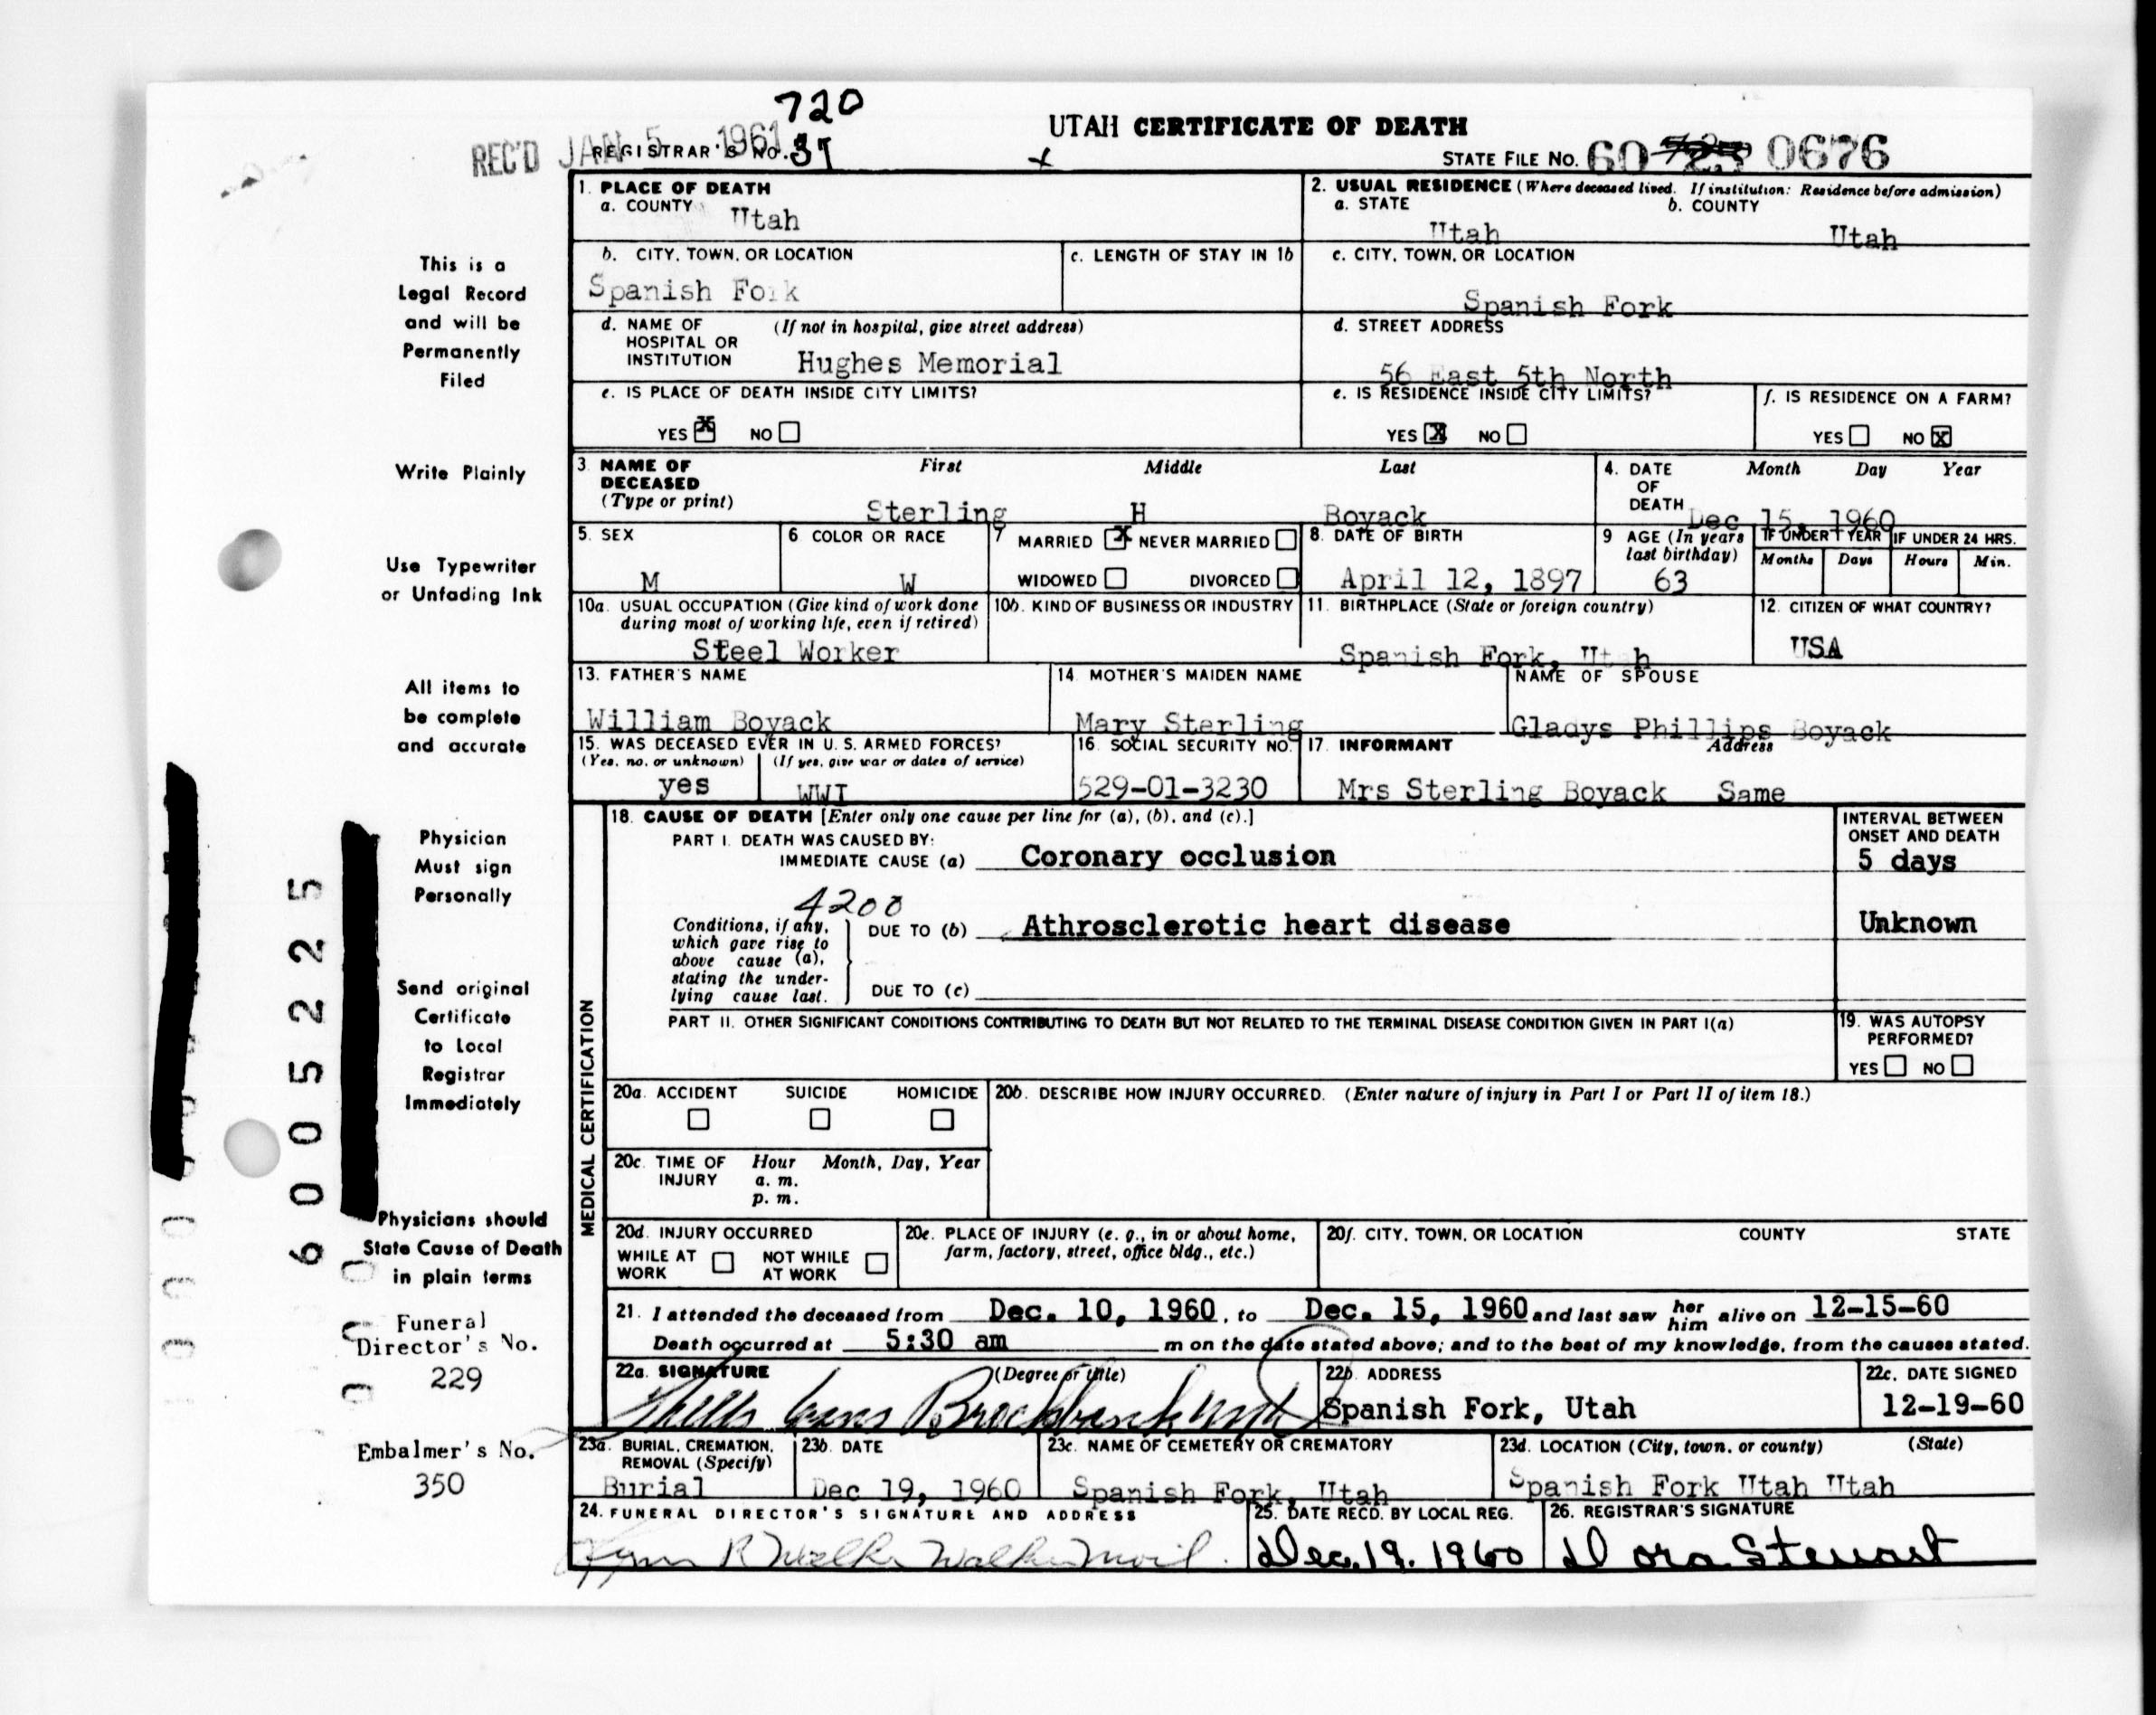 720
UTAH CERTIFICATE OF DEATH
REC'D JAN 5 1961
REGISTRAR'S NO.
STATE FILE No. 60 0676
1. PLACE OF DEATH
a. COUNTY Utah
2. USUAL RESIDENCE (Where deceased lived. If institution: Residence before admission)
a. STATE Utah b. COUNTY Utah
b. CITY, TOWN, OR LOCATION Spanish Fork
c. LENGTH OF STAY IN 1b
c. CITY, TOWN, OR LOCATION Spanish Fork
d. NAME OF HOSPITAL OR INSTITUTION (If not in hospital, give street address) Hughes Memorial
d. STREET ADDRESS 56 East 5th North
e. IS PLACE OF DEATH INSIDE CITY LIMITS? YES X NO
e. IS RESIDENCE INSIDE CITY LIMITS? YES X NO
f. IS RESIDENCE ON A FARM? YES NO X
3. NAME OF DECEASED (Type or print) First Middle Last
Sterling H Boyack
4. DATE OF DEATH Month Day Year
Dec 15, 1960
5. SEX M
6 COLOR OR RACE W
7 MARRIED X NEVER MARRIED WIDOWED DIVORCED
8. DATE OF BIRTH April 12, 1897
9 AGE (In years last birthday) 63
IF UNDER 1 YEAR Months Days
IF UNDER 24 HRS. Hours Min.
10a. USUAL OCCUPATION (Give kind of work done during most of working life, even if retired) Steel Worker
10b. KIND OF BUSINESS OR INDUSTRY
11. BIRTHPLACE (State or foreign country) Spanish Fork, Utah
12. CITIZEN OF WHAT COUNTRY? USA
13. FATHER'S NAME William Boyack
14 MOTHER'S MAIDEN NAME Mary Sterling
NAME OF SPOUSE Gladys Phillips Boyack
15. WAS DECEASED EVER IN U. S. ARMED FORCES?
(Yes, no, or unknown) yes (If yes, give war or dates of service) WWI
16. SOCIAL SECURITY NO. 529-01-3230
17. INFORMANT Address
Mrs Sterling Boyack Same
MEDICAL CERTIFICATION
18. CAUSE OF DEATH [Enter only one cause per line for (a), (b), and (c).]
INTERVAL BETWEEN ONSET AND DEATH
PART I. DEATH WAS CAUSED BY:
IMMEDIATE CAUSE (a) Coronary occlusion 5 days
4200
Conditions, if any, which gave rise to above cause (a), stating the underlying cause last.
DUE TO (b) Athrosclerotic heart disease Unknown
DUE TO (c)
PART II. OTHER SIGNIFICANT CONDITIONS CONTRIBUTING TO DEATH BUT NOT RELATED TO THE TERMINAL DISEASE CONDITION GIVEN IN PART I(a)
19. WAS AUTOPSY PERFORMED? YES NO
20a. ACCIDENT SUICIDE HOMICIDE
20b. DESCRIBE HOW INJURY OCCURRED. (Enter nature of injury in Part I or Part II of item 18.)
20c. TIME OF INJURY Hour Month, Day, Year
a. m.
p. m.
20d. INJURY OCCURRED
WHILE AT WORK NOT WHILE AT WORK
20e. PLACE OF INJURY (e. g., in or about home, farm, factory, street, office bldg., etc.)
20f. CITY, TOWN, OR LOCATION COUNTY STATE
21. I attended the deceased from Dec. 10, 1960, to Dec. 15, 1960 and last saw her him alive on 12-15-60
Death occurred at 5:30 am m on the date stated above; and to the best of my knowledge, from the causes stated.
22a. SIGNATURE (Degree or title)
Brockbank
22b. ADDRESS Spanish Fork, Utah
22c. DATE SIGNED 12-19-60
23a. BURIAL, CREMATION, REMOVAL (Specify) Burial
23b. DATE Dec 19, 1960
23c. NAME OF CEMETERY OR CREMATORY Spanish Fork, Utah
23d. LOCATION (City, town, or county) (State)
Spanish Fork Utah Utah
24. FUNERAL DIRECTOR'S SIGNATURE AND ADDRESS
25. DATE RECD. BY LOCAL REG. Dec. 19. 1960
26. REGISTRAR'S SIGNATURE Dora Stewart
This is a
Legal Record
and will be
Permanently
Filed
Write Plainly
Use Typewriter
or Unfading Ink
All items to
be complete
and accurate
Physician
Must sign
Personally
Send original
Certificate
to Local
Registrar
Immediately
Physicians should
State Cause of Death
in plain terms
Funeral
Director's No.
229
Embalmer's No.
350
6005225